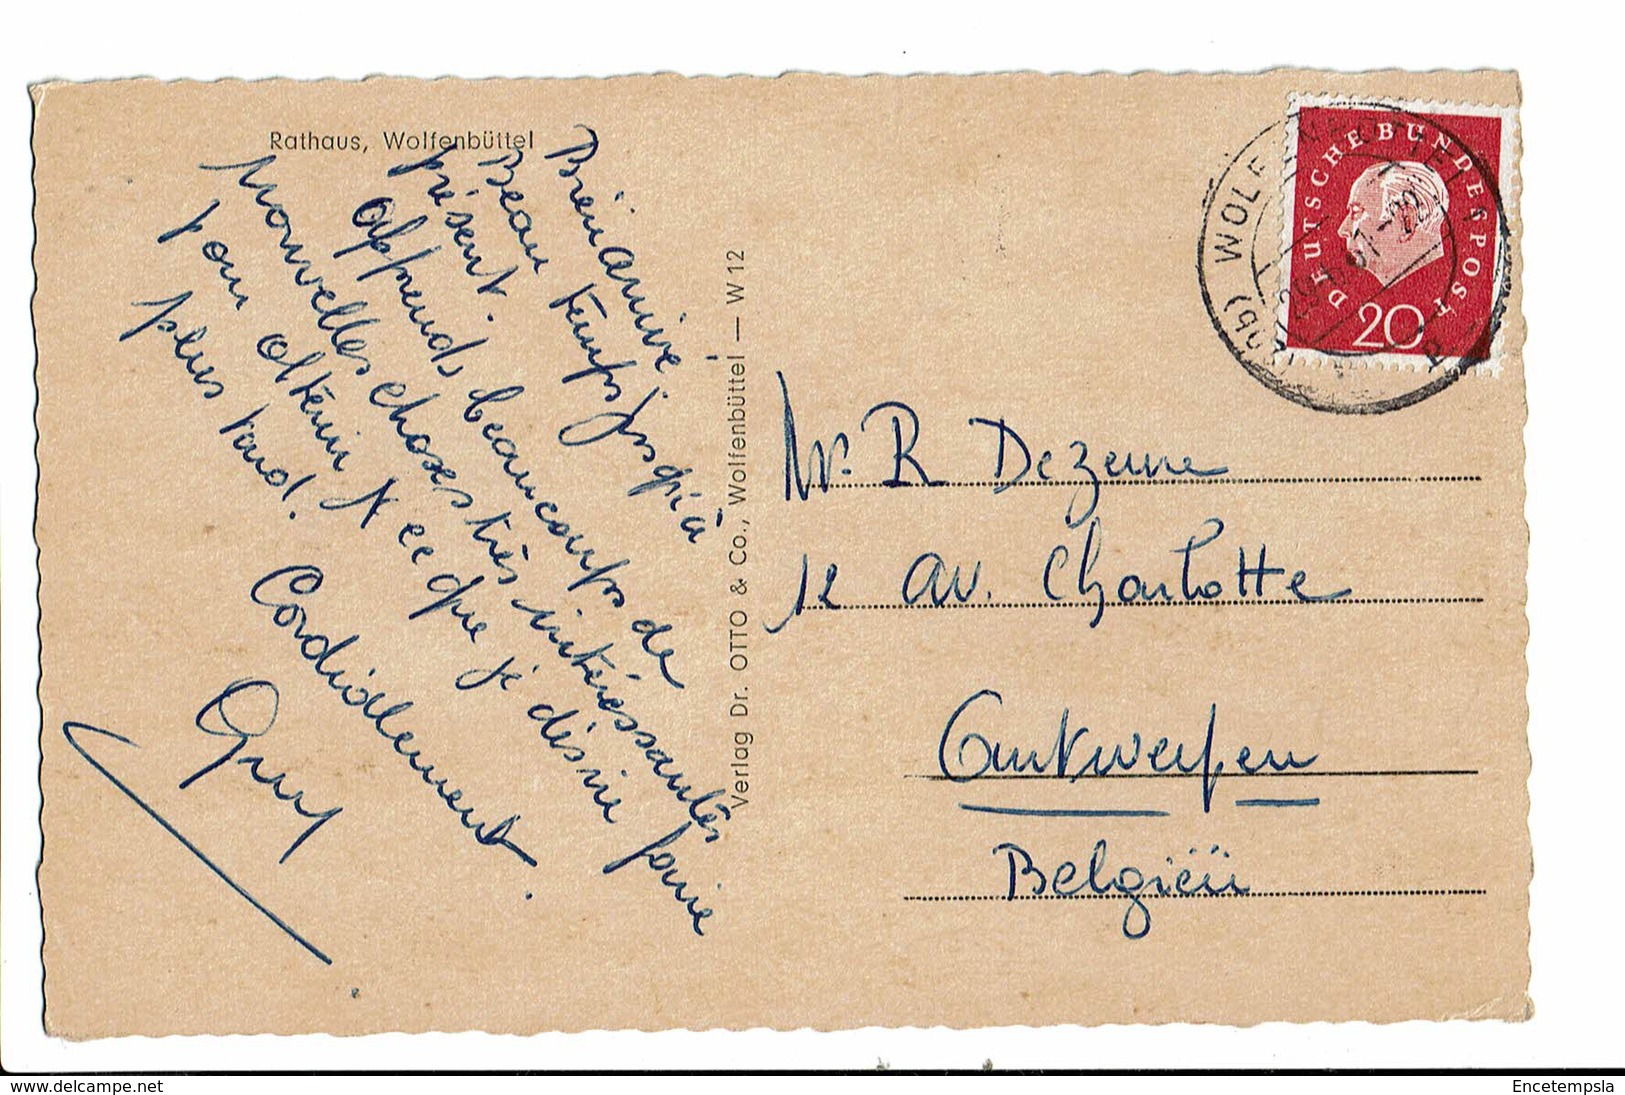 Rathaus, Wolfenbüttel
Bien arrivé,
Beau temps jusqu'à
présent.
Apprends beaucoups de
nouvelles choses très intéressantes
pour obtenir que je désire faire
plus tard.
Cordialement.
Guy
Verlag Dr. OTTO & Co., Wolfenbüttel — W 12
DEUTSCHE BUNDESPOST
20
WOLFENBÜTTEL
Mr. R Dezeure
12 av. Charlotte
Antwerpen
Belgiëii
www.delcampe.net
Encetempsla